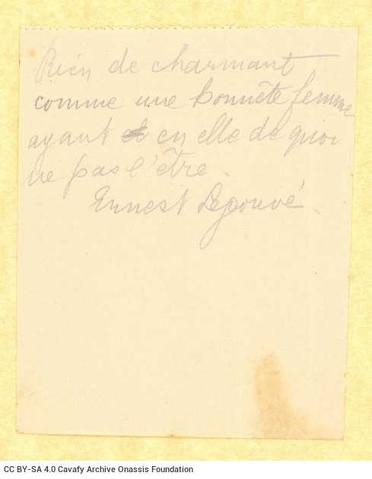 Rien de charmant
comme une honnête femme
ayant en elle de quoi
ne pas l'être.
Ernest Legouvé.
CC BY-SA 4.0 Cavafy Archive Onassis Foundation